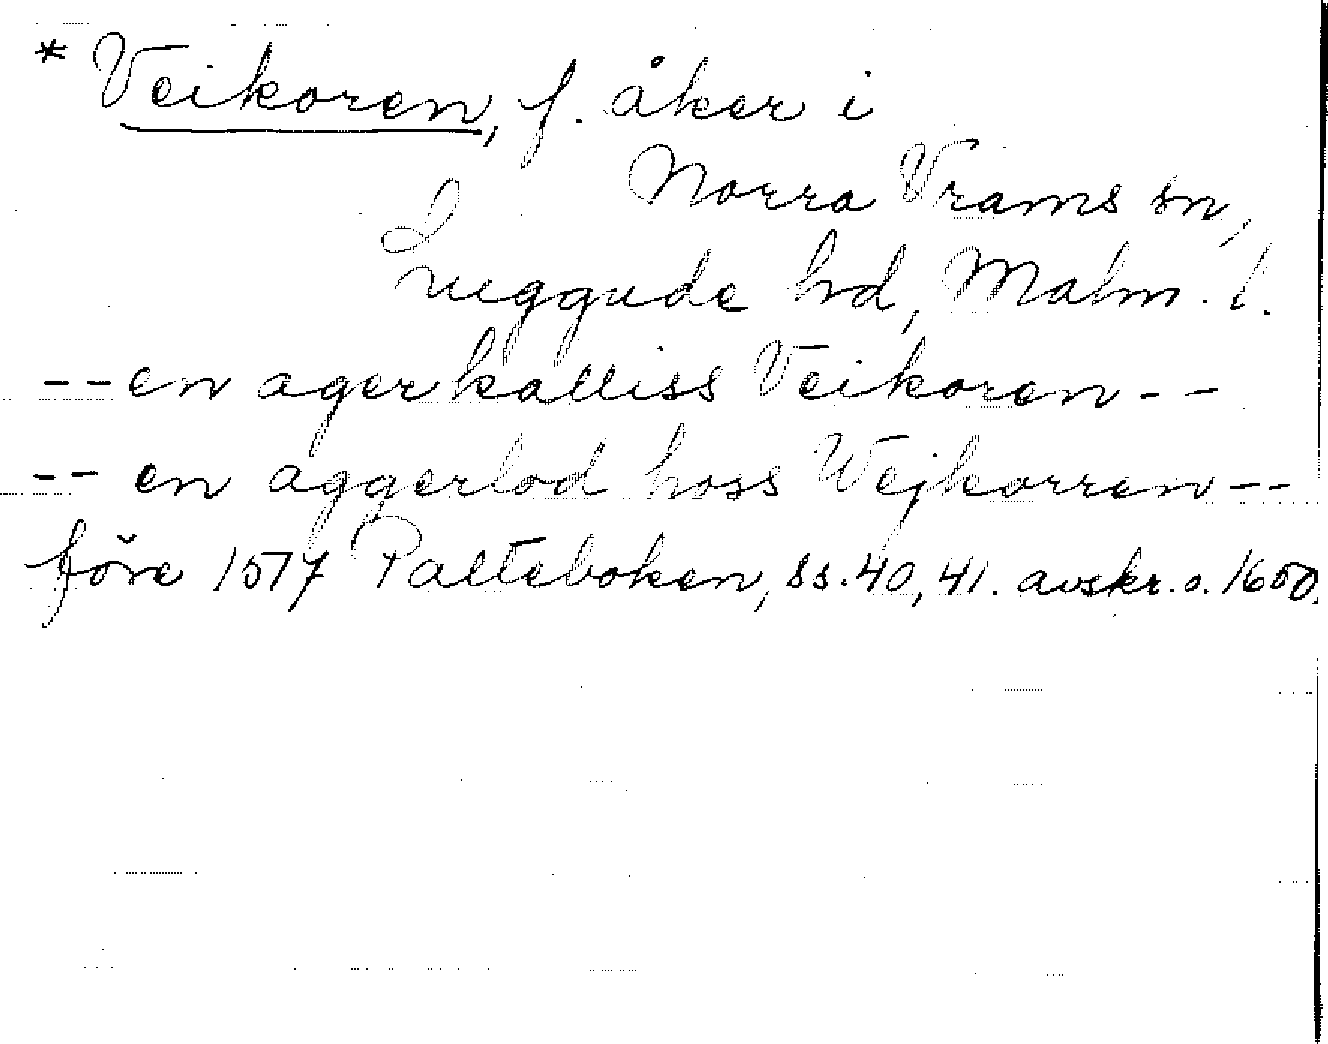 * Veikoren, f. åker i
Norra Vrams sn,
Luggude hd, Malm. l.
-- en ager kalliss Veikoren --
-- en aggerlod hoss Wejkorren --
före 1577 Palteboken, ss. 40, 41. avskr. o. 1650.